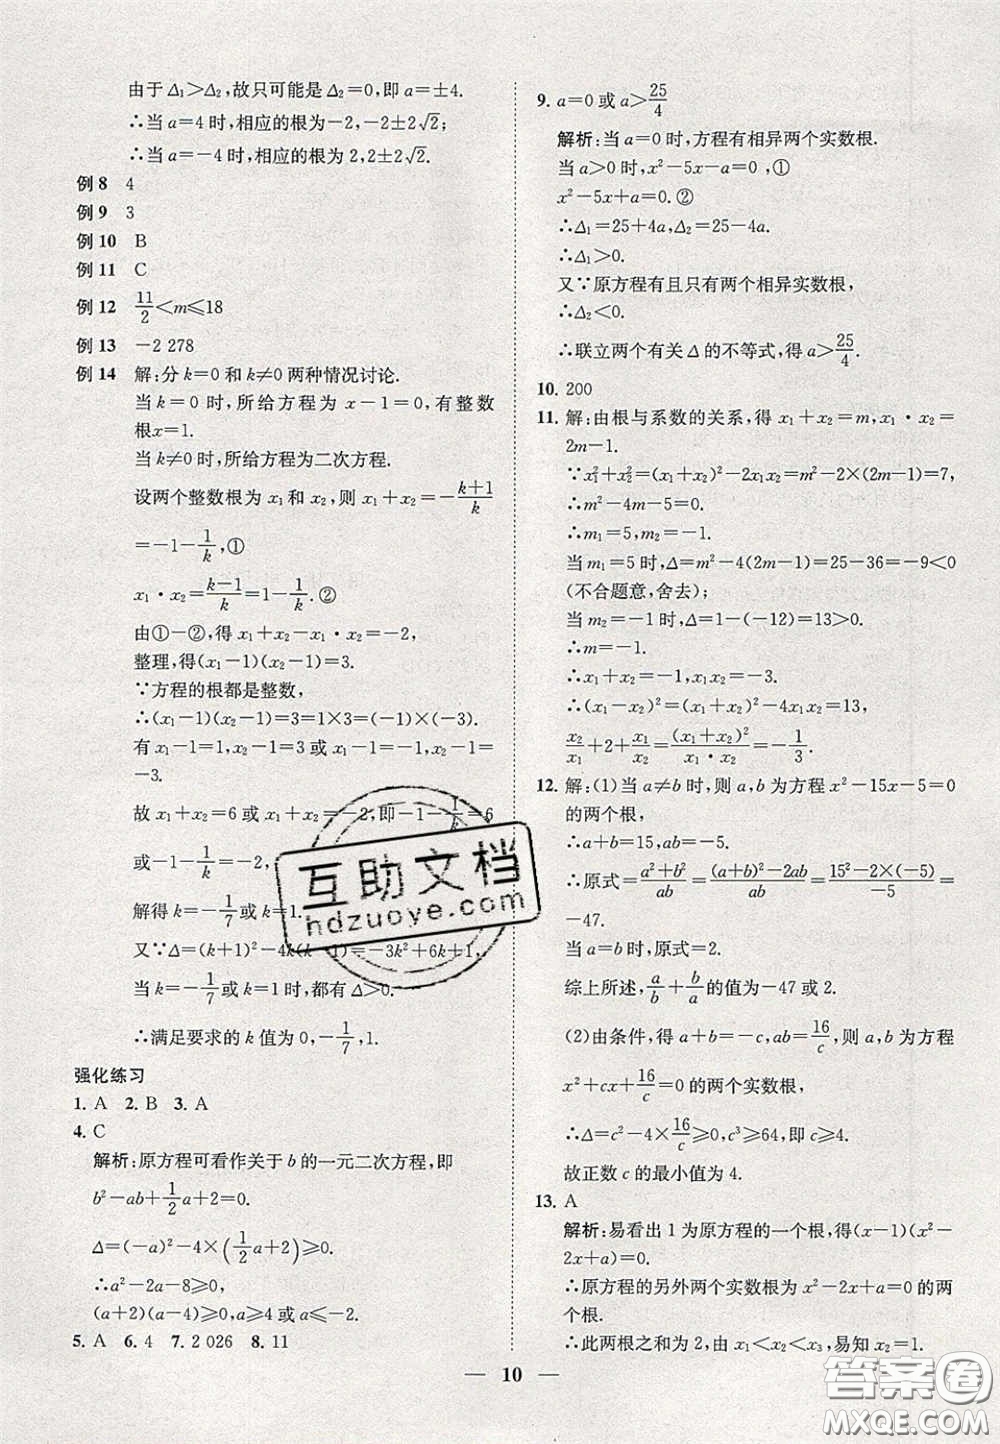 由于Δ₁>Δ₂,故只可能是Δ₂=0,即a=±4.
∴当a=4时,相应的根为-2,-2±2√2;
∴当a=-4时,相应的根为2,2±2√2.
例8 4
例9 3
例10 B
例11 C
例12 11/2<m≤18
例13 -2 278
例14 解:分k=0和k≠0两种情况讨论.
当k=0时,所给方程为x-1=0,有整数
根x=1.
当k≠0时,所给方程为二次方程.
设两个整数根为x₁和x₂,则x₁+x₂=-(k+1)/k
=-1-1/k,①
x₁·x₂=(k-1)/k=1-1/k.②
由①-②,得x₁+x₂-x₁·x₂=-2,
整理,得(x₁-1)(x₂-1)=3.
∵方程的根都是整数,
∴(x₁-1)(x₂-1)=3=1×3=(-1)×(-3).
有x₁-1=1,x₂-1=3或x₁-1=-1,x₂-1=
-3.
故x₁+x₂=6或x₁+x₂=-2,即-1-1/k=6
或-1-1/k=-2,
解得k=-1/7或k=1.
又∵Δ=(k+1)²-4k(k-1)=-3k²+6k+1,
当k=-1/7或k=1时,都有Δ>0.
∴满足要求的k值为0,-1/7,1.
强化练习
1. A 2. B 3. A
4. C
解析:原方程可看作关于b的一元二次方程,即
b²-ab+1/2a+2=0.
Δ=(-a)²-4×(1/2a+2)≥0.
∴a²-2a-8≥0,
(a+2)(a-4)≥0,a≥4或a≤-2.
5. A 6. 4 7. 2 026 8. 11
9. a=0或a>25/4
解析:当a=0时,方程有相异两个实数根.
当a>0时,x²-5x-a=0,①
x²-5x+a=0.②
∴Δ₁=25+4a,Δ₂=25-4a.
∴Δ₁>0.
又∵原方程有且只有两个相异实数根,
∴Δ₂<0.
∴联立两个有关Δ的不等式,得a>25/4.
10. 200
11. 解:由根与系数的关系,得x₁+x₂=m,x₁·x₂=
2m-1.
∵x₁²+x₂²=(x₁+x₂)²-2x₁x₂=m²-2×(2m-1)=7,
∴m²-4m-5=0.
∴m₁=5,m₂=-1.
当m₁=5时,Δ=m²-4(2m-1)=25-36=-9<0
(不合题意,舍去);
当m₂=-1时,Δ=1-(-12)=13>0.
∴m=-1.
∴x₁+x₂=-1,x₁x₂=-3.
∴(x₁-x₂)²=(x₁+x₂)²-4x₁x₂=13,
x₂/x₁+2+x₁/x₂=(x₁+x₂)²/(x₁·x₂)=-1/3.
12. 解:(1)当a≠b时,则a,b为方程x²-15x-5=0
的两个根,
∴a+b=15,ab=-5.
∴原式=(a²+b²)/ab=((a+b)²-2ab)/ab=(15²-2×(-5))/(-5)=
-47.
当a=b时,原式=2.
综上所述,a/b+b/a的值为-47或2.
(2)由条件,得a+b=-c,ab=16/c,则a,b为方程
x²+cx+16/c=0的两个实数根,
∴Δ=c²-4×16/c≥0,c³≥64,即c≥4.
故正数c的最小值为4.
13. A
解析:易看出1为原方程的一个根,得(x-1)(x²-
2x+a)=0.
∴原方程的另外两个实数根为x²-2x+a=0的两
个根.
∴此两根之和为2,由x₁<x₂<x₃,易知x₂=1.
— 10 —
互助文档
hdzuoye.com
答案圈
MXQE.COM